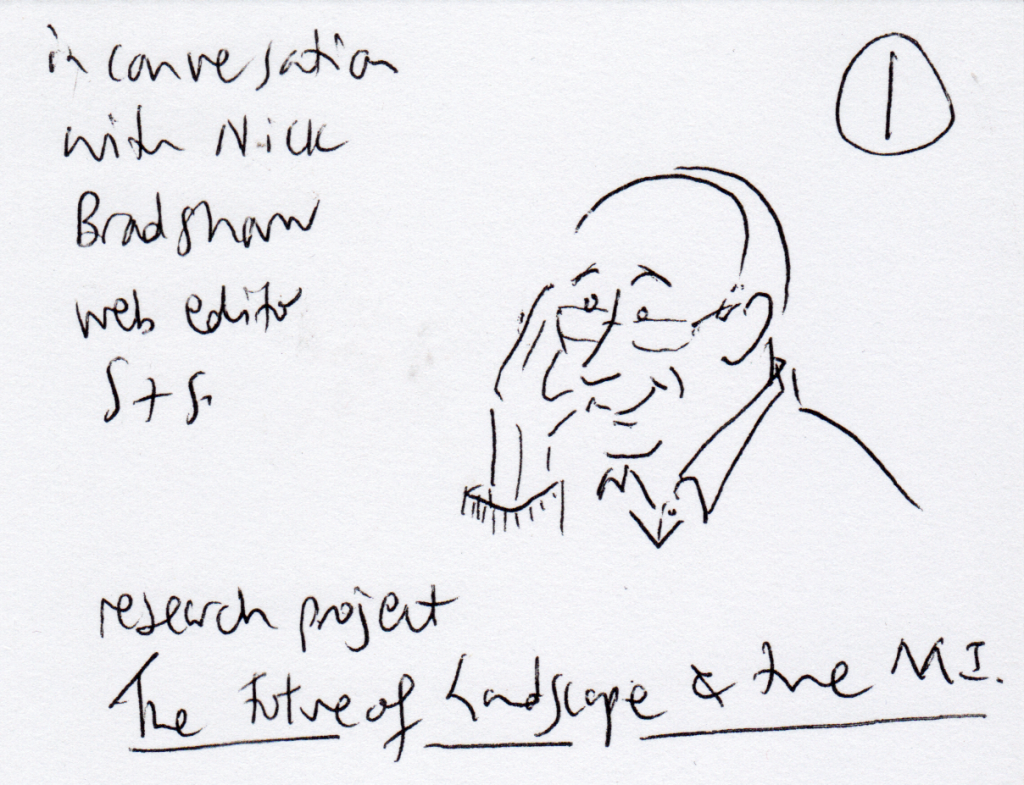 in conversation
1
with Nick
Bradshaw
web editor
S + S.
research project
The Future of Landscape & the M.I.